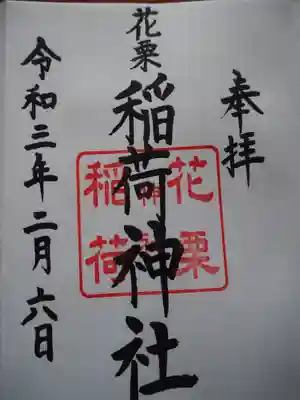 奉拝
花栗
稲荷神社
花栗
神社
稲荷
令和三年二月六日